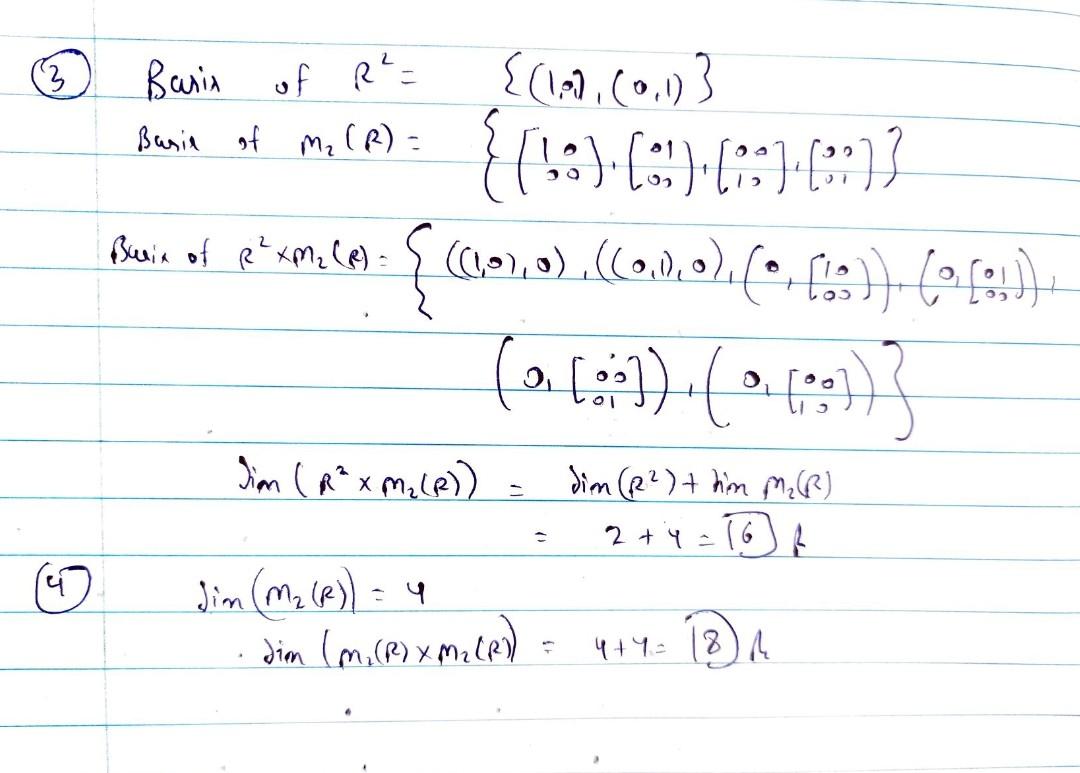 ③ Basis of R² = {(1,0), (0,1)}
Basis of M₂(R) = {[1 0; 0 0], [0 1; 0 0], [0 0; 1 0], [0 0; 0 1]}
Basis of R² × M₂(R) = {((1,0), 0), ((0,1), 0), (0, [1 0; 0 0]), (0, [0 1; 0 0]),
(0, [0 0; 0 1]), (0, [0 0; 1 0])}
dim (R² × M₂(R)) = dim (R²) + dim M₂(R)
= 2 + 4 = 6
④ dim (M₂(R)) = 4
dim (M₂(R) × M₂(R)) = 4+4 = 8